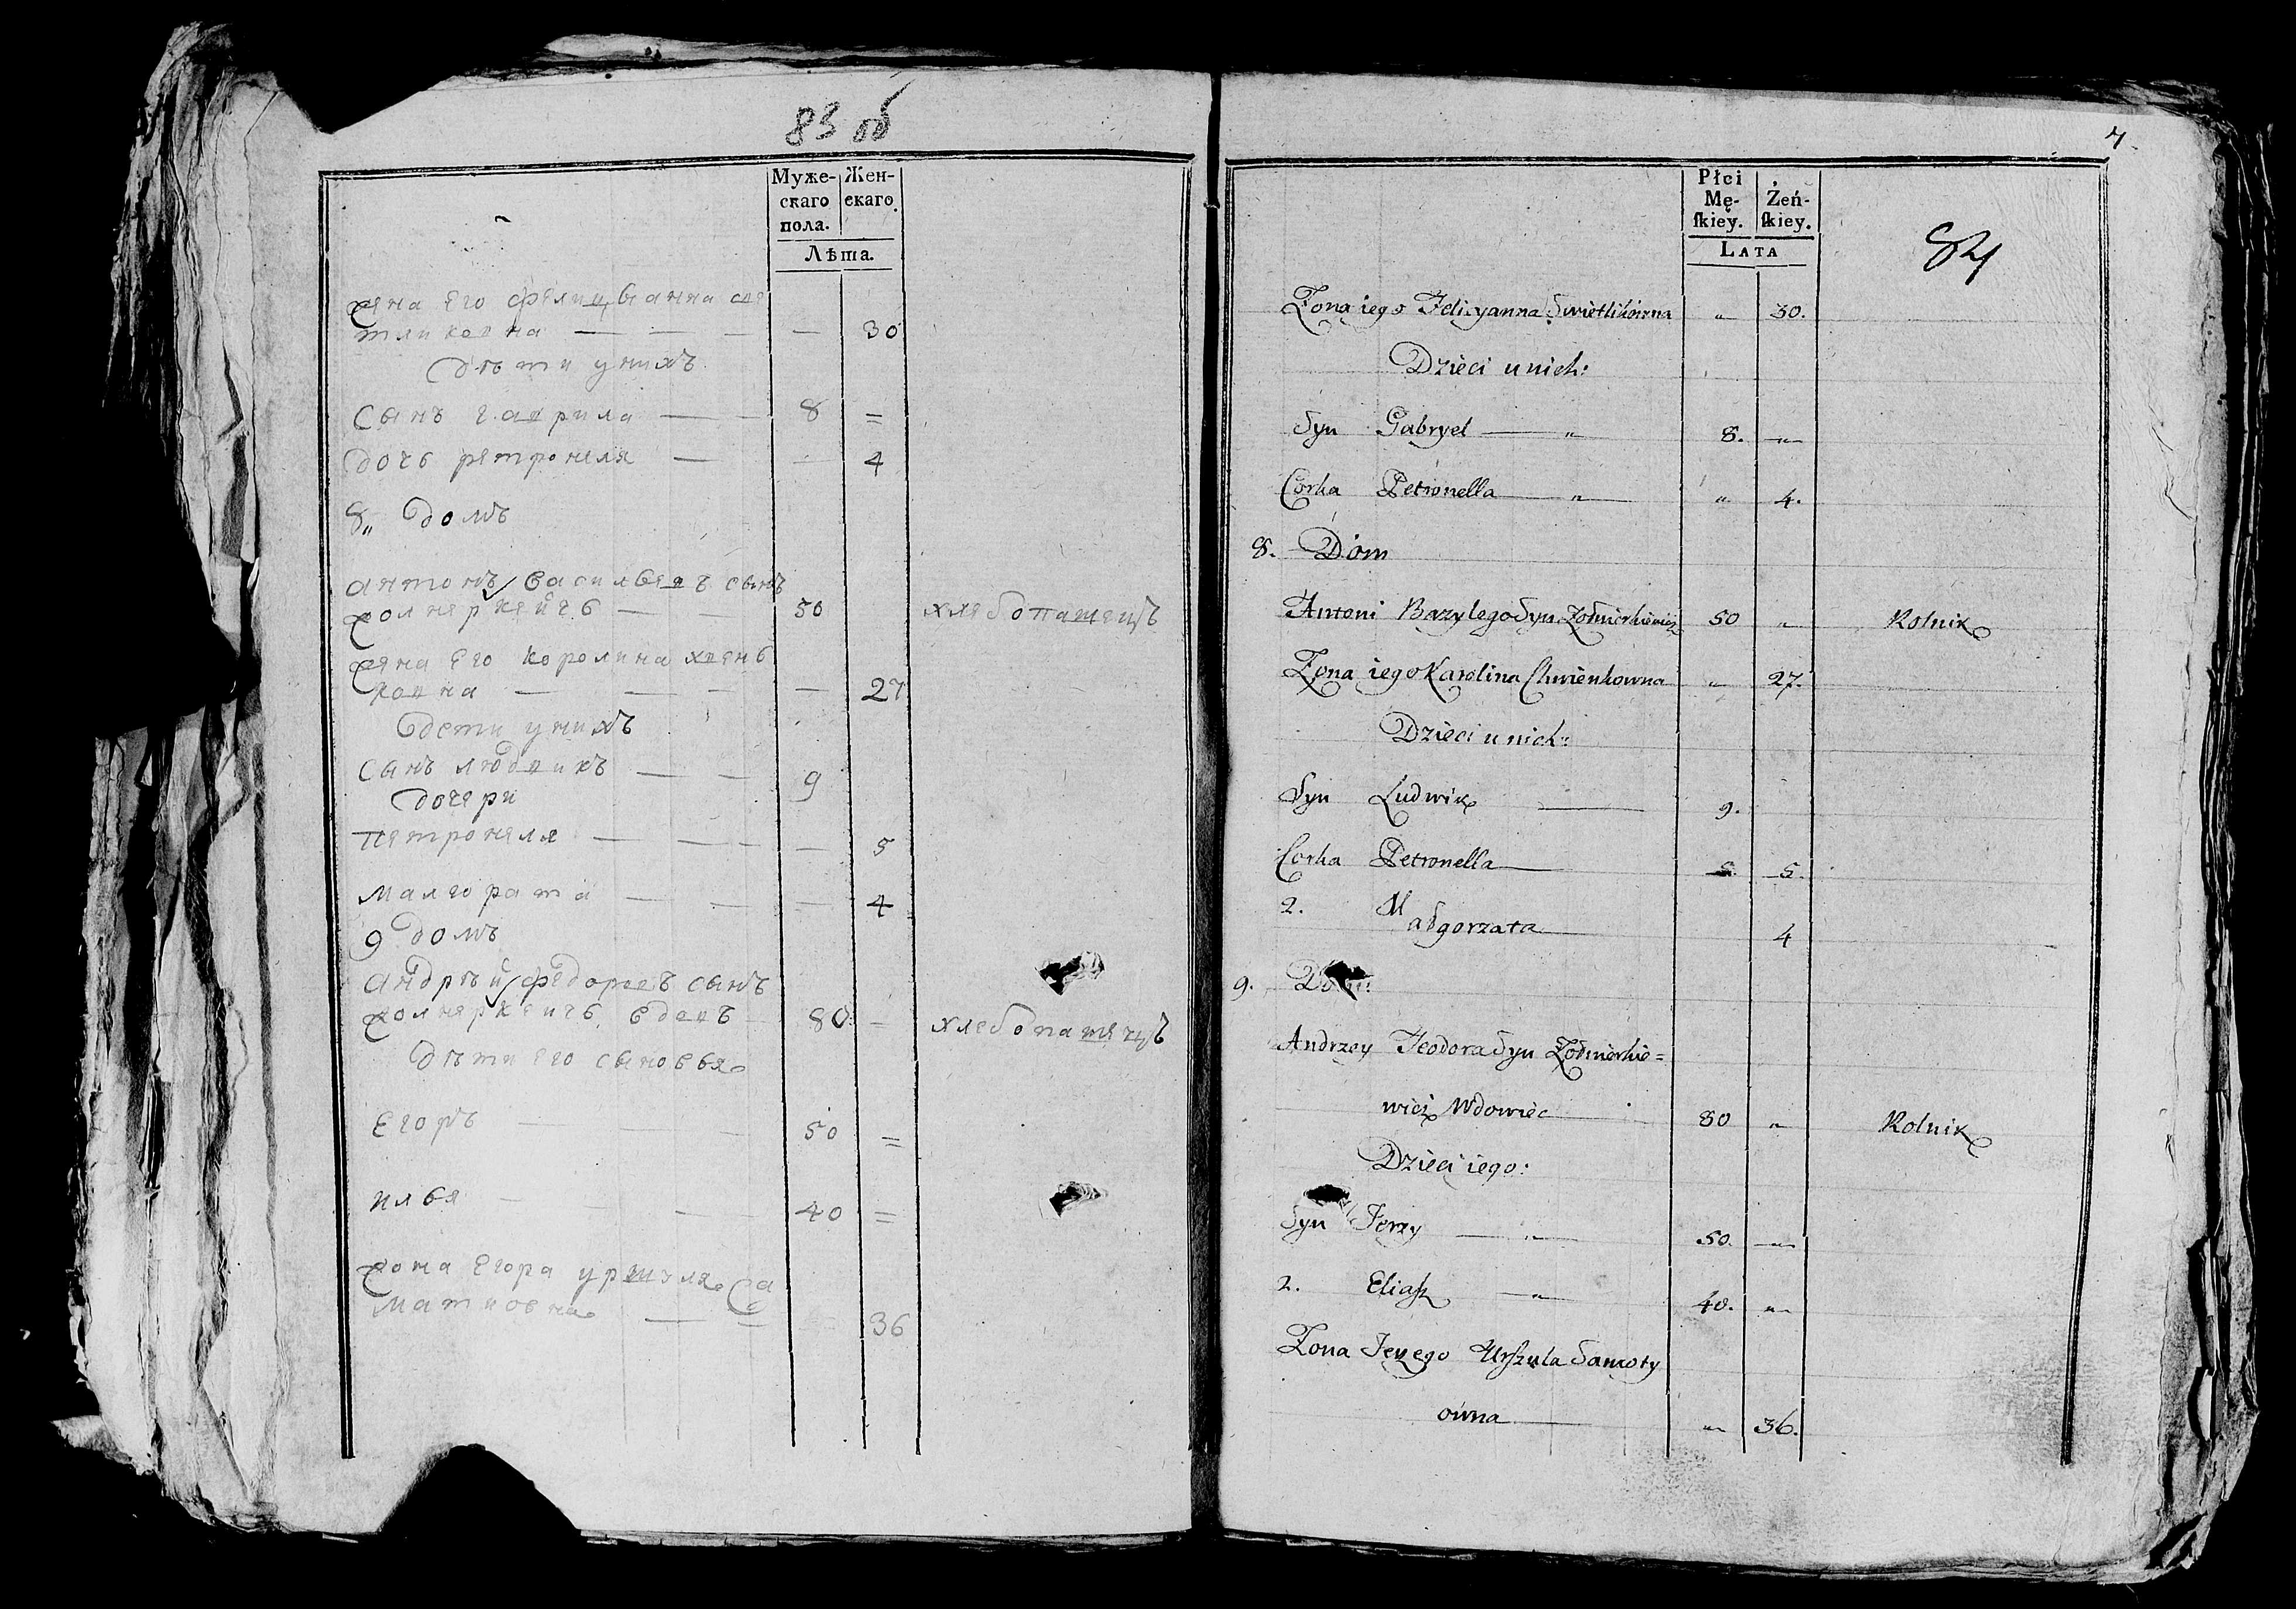 83 об
Муже-
скаго
пола.
Жен-
скаго.
Лѣта.
жена его фелицыанна све
тликовна — — — — 30
дѣти унихъ
Сынъ гаврила — — 8 =
дочь петронеля — — 4
8„ домъ
антонъ василъевъ сынъ
жолнеркевичь — — 50 хлебопашецъ
жена его королина хвень
ковна — — — — 27
дети унихъ
сынъ людвикъ — — 9
дочери
петронеля — — — — 5
малгората — — — 4
9 домъ
андрѣй федоровъ сынъ
жолнеркевичь вдовъ 80 — хлебопашецъ
дѣти его сыновья
Егоръ — — — 50 =
илья — — — 40 =
жона Егора уршуля Са
матиовна — — 36
7.
84
Płci
Mę-
skiey.
Żeń-
skiey.
LATA
Żona iego Felicyanna Swietlikowna „ 30.
Dzieci u nich:
Syn Gabryel — „ — 8. „
Corka Petronella — „ — „ 4.
8. Dom
Antoni Bazylego Syn Żołnierkiewicz 50 „ Rolnik
Żona iego Karolina Chwienkowna „ 27.
Dzieci u nich:
Syn Ludwik — 9.
Corka Petronella — 5. 5.
2. Małgorzata — 4
9. Dom:
Andrzey Teodora Syn Żołnierkie=
wicz Wdowiec — 80 „ Rolnik
Dzieci iego:
Syn Jerzy — „ — 50. „
2. Eliasz — „ — 40. „
Żona Jerzego Urszula Samoty
owna — „ 36.